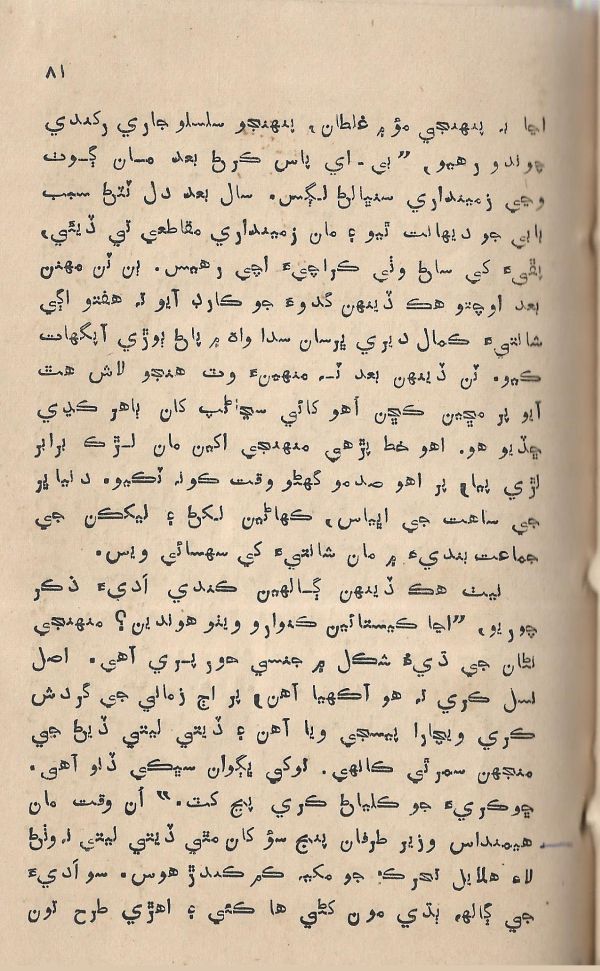 ۸۱
اڃا بہ پنهنجي مؤ ۾ غلطان، پنهنجو سلسلو جاري رکندي
چوندو رهيو، ”بي-اي پاس ڪرڻ بعد مان ڳوٺ
وڃي زمينداري سنڀالڻ لڳس. سال بعد دل ٽٽڻ سبب
بابي جو ديهانت ٿيو ۽ مان زمينداري مقاطعي تي ڏيئي،
ٻقيءَ کي ساڻ وٺي ڪراچيءَ اچي رهيس. ٻن ٽن مهنن
بعد اوچتو هڪ ڏينهن گدوءَ جو ڪارڊ آيو تہ هفتو اڳي
شانتيءَ ڪمال ديري ڀرسان سدا واہ ۾ پاڻ ٻوڙي آپگهات
ڪيو. ٽن ڏينهن بعد ٺـ منهينءَ وٽ هنجو لاش هٿ
آيو پر مڇين ڪڇن اُهو کائي سڃاڻپ کان ٻاهر ڪڍي
ڇڏيو هو. اهو خط پڙهي منهنجي اکين مان لڙڪ برابر
لڙي پيا، پر اهو صدمو گهڻو وقت ڪونہ ٽڪيو. دنيا ڀر
جي ساهت جي اڀياس، ڪهاڻين لکڻ ۽ ليکڪن جي
جماعت بنديءَ ۾ مان شانتيءَ کي سهسائي ويس.
نيٺ هڪ ڏينهن ڳالهين ڪندي اَديءَ ذڪر
چوريو، ”اڃا ڪيستائين ڪنوارو ويٺو هوندين؟ منهنجي
نڻان جي ڌيءُ شڪل ۾ جنسي حور پري آهي. اصل
نسل ڪري تہ هو آکهيا آهن، پر اڄ زماني جي گردش
ڪري ويچارا پيسجي ويا آهن ۽ ڏيتي ليتي ڏيڻ جي
منجهن سمرٿي ڪانهي. توکي ڀڳوان سڀڪي ڏنو آهي.
ڇوڪريءَ جو ڪلياڻ ڪري پڃ کٽ.“ اُن وقت مان
هيمنداس وزير طرفان پنج سؤ کان مٿي ڏيتي ليتي نہ وٺڻ
لاءِ هلايل تحرڪ جو مکيہ ڪم ڪندڙ هوس. سو اَديءَ
جي ڳالهہ ٻڌي مون کڻي ها ڪئي ۽ اهڙي طرح تون